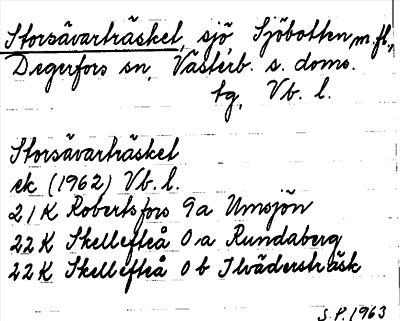 Storsävarträsket, sjö Sjöbotten, m. fl.,
Degerfors sn, Västerb. s. doms.
tg, Vb. l.
Storsävarträsket
ek (1962) Vb. l.
21K Robertsfors 9a Umsjön
22K Skellefteå 0a Rundaberg
22K Skellefteå 0b Ilvädersträsk
S.P. 1963